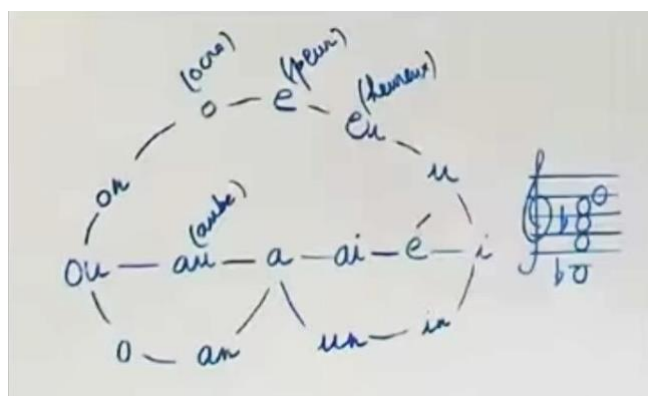 (ocre)
(peur)
(heureux)
o e eu
u
on
(aube)
ou au a ai é i
o an un in